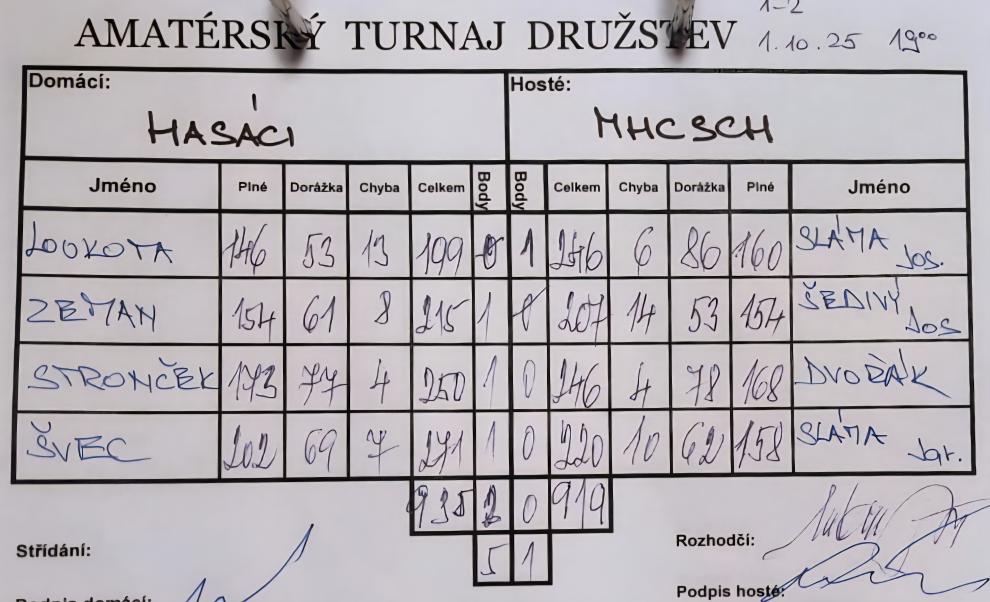 1-2
AMATÉRSKÝ TURNAJ DRUŽSTEV 1.10.25 19⁰⁰
Domácí: Hosté:
HASÁCI MHCSCH
Jméno Plné Dorážka Chyba Celkem Body Body Celkem Chyba Dorážka Plné Jméno
LOUKOTA 146 53 13 199 0 1 246 6 86 160 SLÁMA Jos.
ZEMAN 154 61 8 215 1 0 207 14 53 154 ŠEDIVÝ Jos
STRONČEK 173 77 4 250 1 0 246 4 78 168 DVOŘÁK
ŠVEC 202 69 7 271 1 0 220 10 62 158 SLÁMA Jar.
935 2 0 919
5 1
Střídání: Rozhodčí:
Podpis domácí: Podpis hosté: